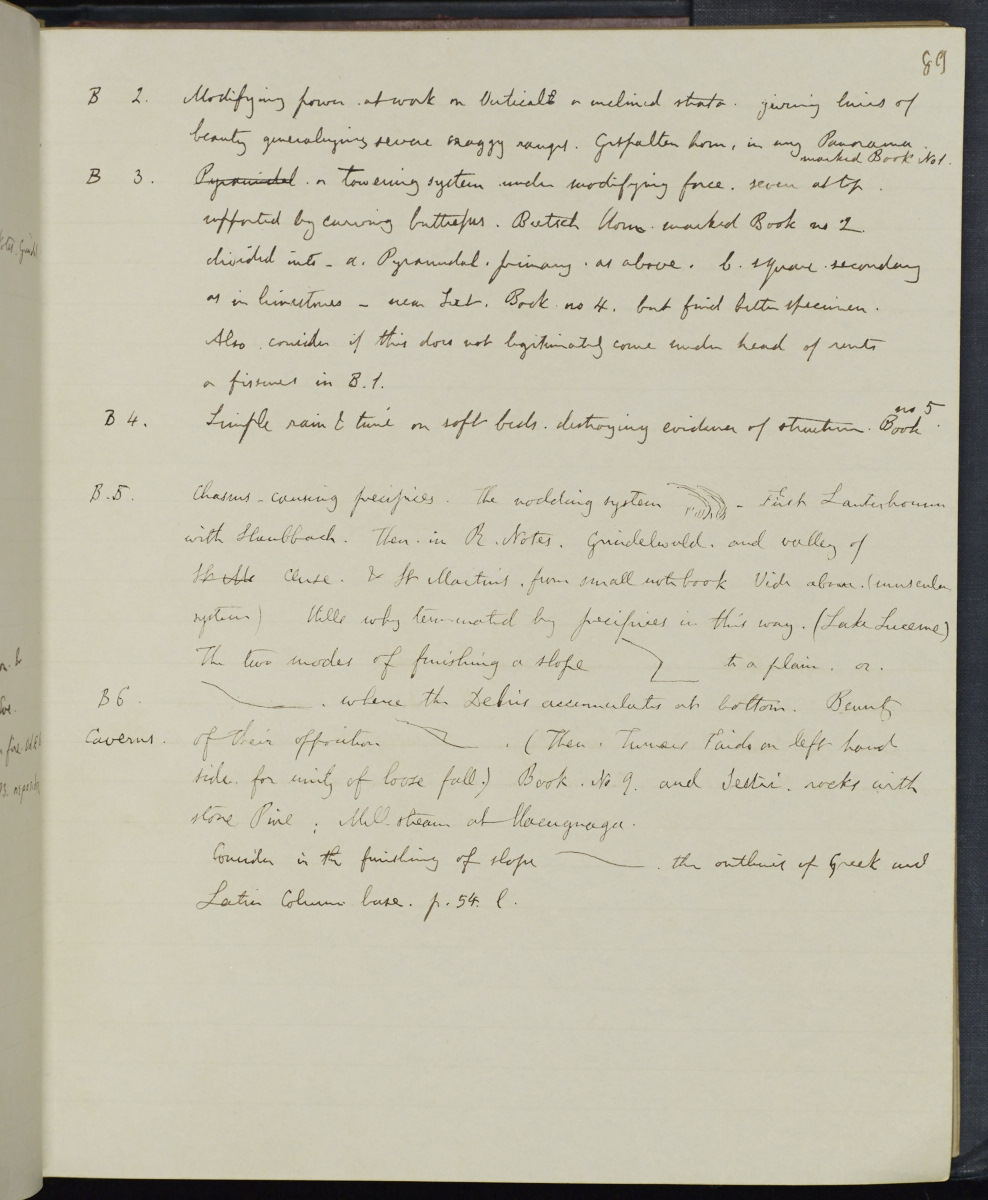 89
B 2. Modifying power. at work on Vertical & or inclined strata. giving lines of
beauty generalizing severe craggy ranges. Gspalten horn, in my Panorama.
marked Book No 1.
B 3. Pyramidal. or towering system. under modifying force. seven at top.
supported by curving buttresses. Bietsch Horn. marked Book no 2.
divided into - a. Pyramidal. primary. as above. b. square. secondary
as in limestones - near Book no 4. but find better specimen.
Also. consider if this does not legitimately come under head of rents
or fissures in B.1.
B 4. Simple rain & time on soft beds. destroying evidence of structure. Book no 5.
B.5. Chasms - causing precipices. The nodding system - First Lauterbrunn
with Staubbach. Then. in R. Notes. Grindelwald. and valley of
Cluse. & St Martins. from small notebook Vide above. (muscular
system) Hills why terminated by precipices in this way. (Lake Lucerne)
The two modes of finishing a slope to a plain. or.
B 6 . where the Debris accumulates at bottom. Beauty
Caverns. of their opposition . (Then. Turners Faido on left hand
side. for unity of loose fall.) Book. No 9. and Sestri. rocks with
stone Pine; Mill stream at Macugnaga.
Consider in the finishing of slope . the outlines of Greek and
Latin Column base. p. 54. l.